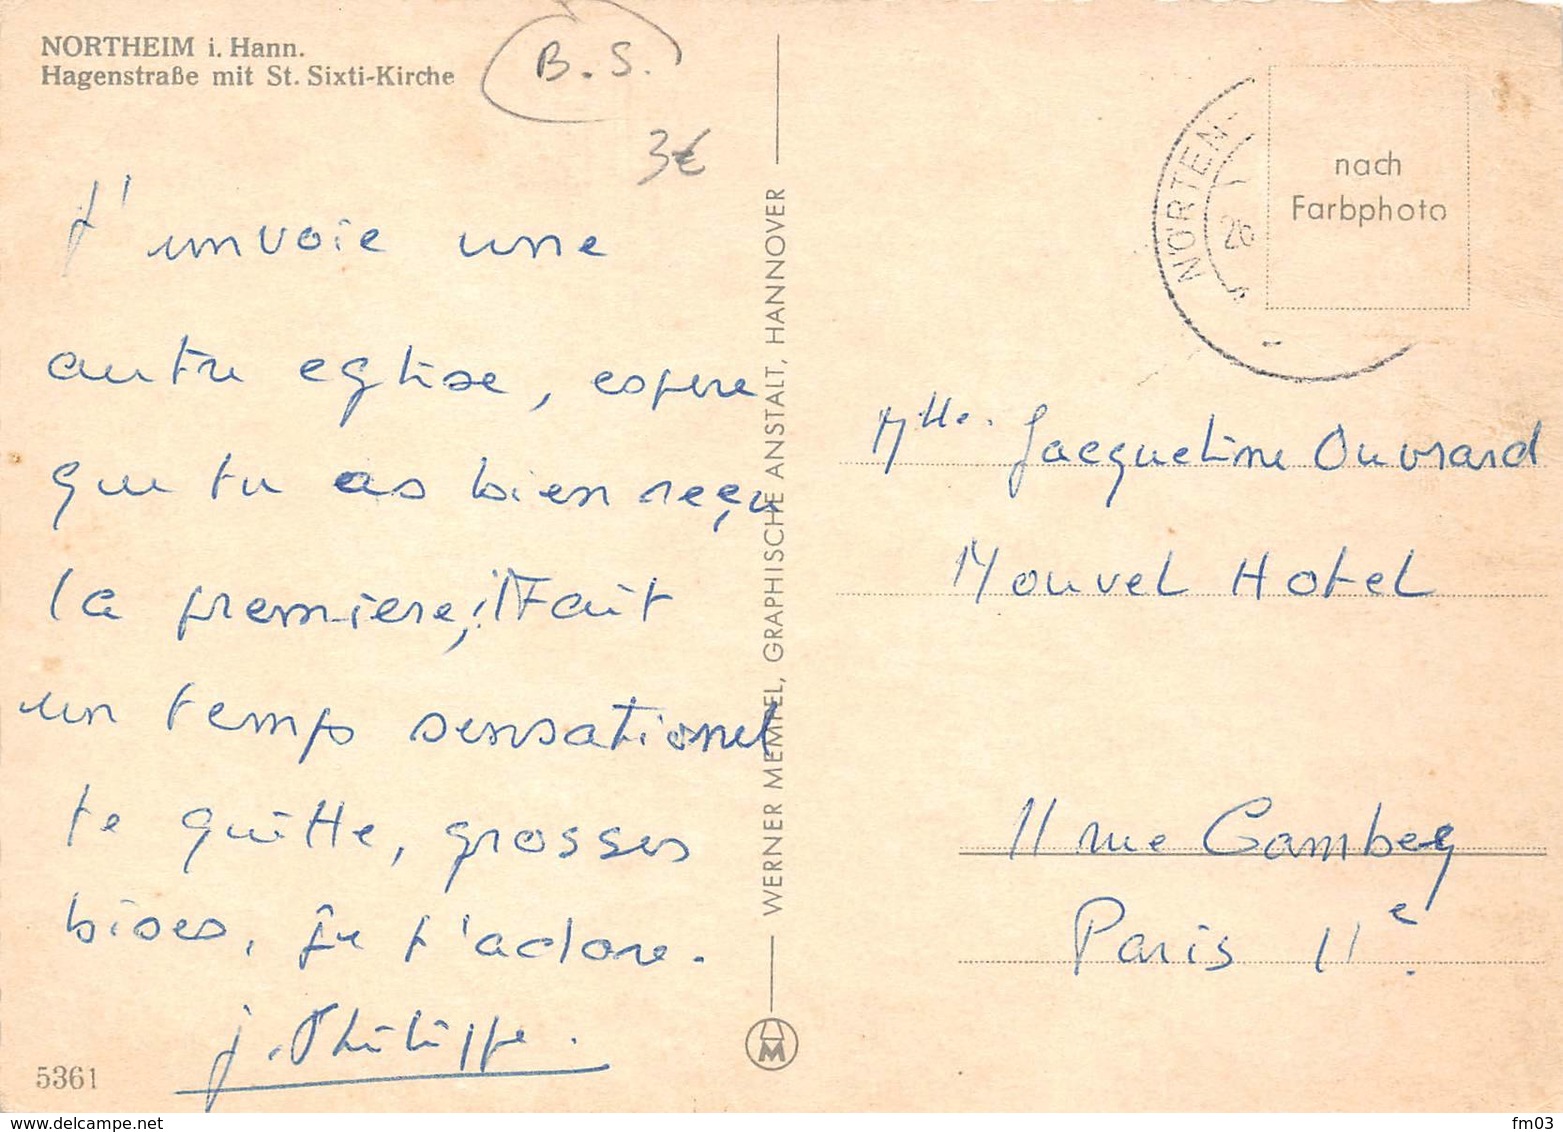 NORTHEIM i. Hann.
Hagenstraße mit St. Sixti-Kirche
B. S.
3€
J'unvoie une
autre eglise, espere
que tu as bien reçu
la premiere, il Fait
un temps sensationel
te quitte, grosses
bises, je t'adore.
J. Philippe.
5361
WERNER MEMPEL, GRAPHISCHE ANSTALT, HANNOVER
NÖRTEN-
26
nach
Farbphoto
Mlle. Jacqueline Ouvrard
Nouvel Hotel
11 rue Gambey
Paris 11e.
www.delcampe.net
fm03